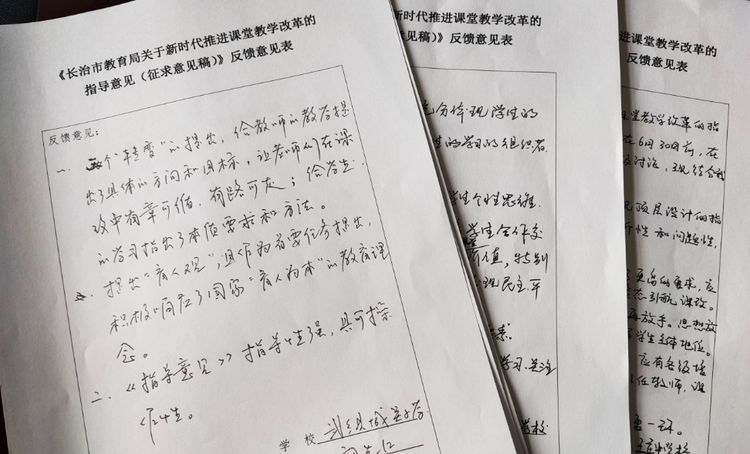 《长治市教育局关于新时代推进课堂教学改革的
指导意见（征求意见稿）》反馈意见表
反馈意见：
一、个"转变"的提出，给教师的教学提
出了具体的方向和目标，让老师们在课
改中有章可循，有路可走；给学生
的学习指出了本质要求和方法。
提出"育人观"，且作为首要任务提出，
积极响应了国家"育人为本"的教育理
念。
二、《指导意见》指导性强，具可操
作性。
学校
新时代推进课堂教学改革的
见稿）》反馈意见表
充分体现学生的
生的学习的组织者
学生个性思维
学生合作交
价值，特别
现民主平
学习
学校
推进课堂教学改革的
反馈意见表
堂教学改革的指
在6月30日前，在
讨论，现结合我
顶层设计的指
性和问题性，
更高的要求，应
引航课改。
再放手。思想放
学生主体地位。
应有各级培
任教师，课